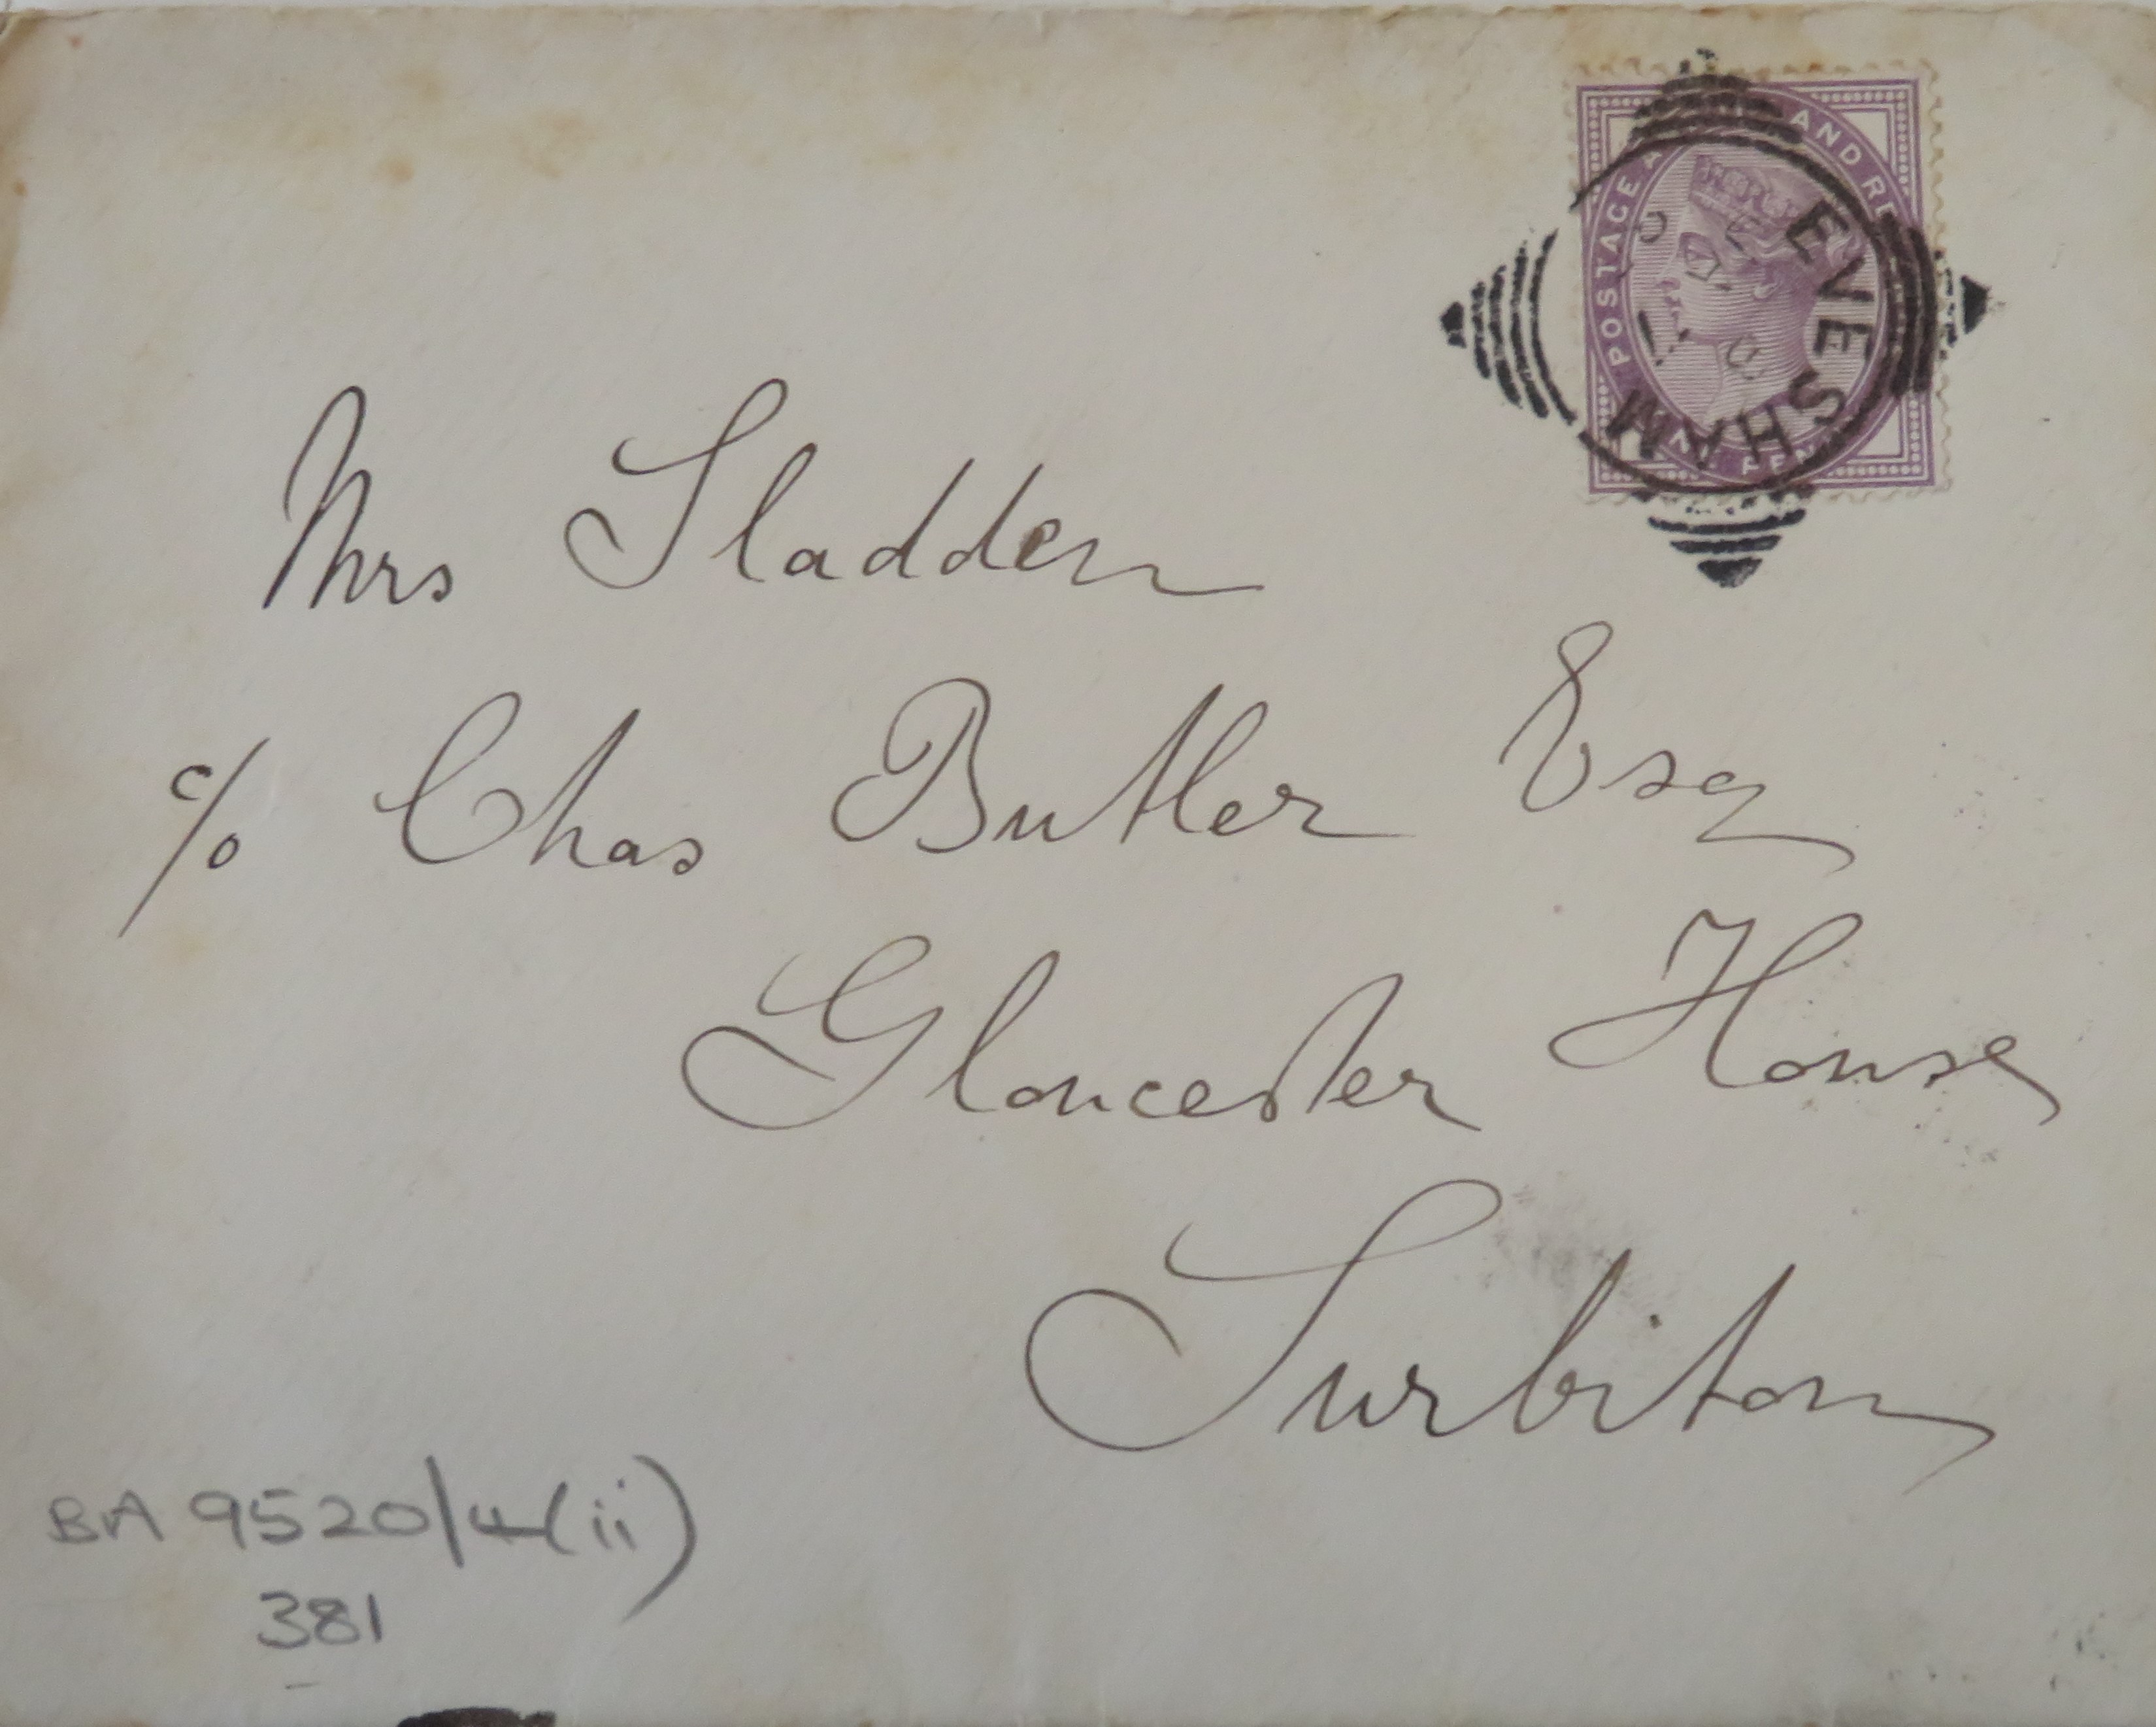 POSTAGE AND RE
EVESHAM
Mrs Sladden
c/o Chas Butler Esq
Gloucester House
Surbiton
BA 9520/4(ii)
381